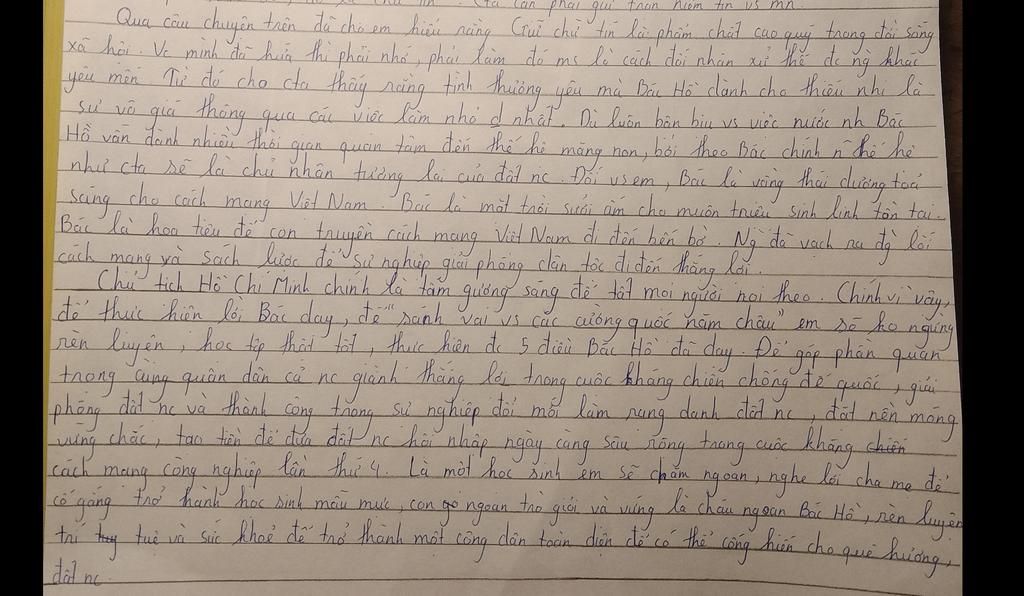 Cta cần phải giữ trọn niềm tin vs mn.
Qua câu chuyện trên đã cho em hiểu rằng Giữ chữ tín là phẩm chất cao quý trong đời sống
xã hội. Vc mình đã hứa thì phải nhớ, phải làm đó ms là cách đối nhân xử thế đc ng khác
yêu mến. Từ đó cho cta thấy rằng tình thương yêu mà Bác Hồ dành cho thiếu nhi là
sự vô giá thông qua các việc làm nhỏ nhất. Dù luôn bận bịu vs việc nước nh Bác
Hồ vẫn dành nhiều thời gian quan tâm đến thế hệ măng non, bởi theo Bác chính thế hệ
như cta sẽ là chủ nhân tương lai của đất nc. Đối vs em, Bác là vầng thái dương toả
sáng cho cách mạng Việt Nam. Bác là mặt trời sưởi ấm cho muôn triệu sinh linh tồn tại.
Bác là hoa tiêu để con truyền cách mạng Việt Nam đi đến bến bờ. Ng đã vạch ra đg lối
cách mạng và sách lược để sự nghiệp giải phóng dân tộc đi đến thắng lợi.
Chủ tịch Hồ Chí Minh chính là tấm gương sáng để tất mọi người noi theo. Chính vì vậy,
để thực hiện lời Bác dạy, để "sanh vai vs các cường quốc năm châu" em sẽ ko ngừng
rèn luyện, học tập thật tốt, thực hiện đc 5 điều Bác Hồ đã dạy. Để góp phần quan
trọng cùng quân dân cả nc giành thắng lợi trong cuộc kháng chiến chống đế quốc, giải
phóng đất nc và thành công trong sự nghiệp đổi mới làm rạng danh đất nc, đặt nền móng
vững chắc, tạo tiền đề đưa đất nc hội nhập ngày càng sâu rộng trong cuộc kháng chiến
cách mạng công nghiệp lần thứ 4. Là một học sinh em sẽ chăm ngoan, nghe lời cha mẹ để
cố gắng trở thành học sinh mẫu mực, con ngoan trò giỏi và xứng là cháu ngoan Bác Hồ, rèn luyện
trí tuệ và sức khoẻ để trở thành một công dân toàn diện để có thể cống hiến cho quê hương,
đất nc.